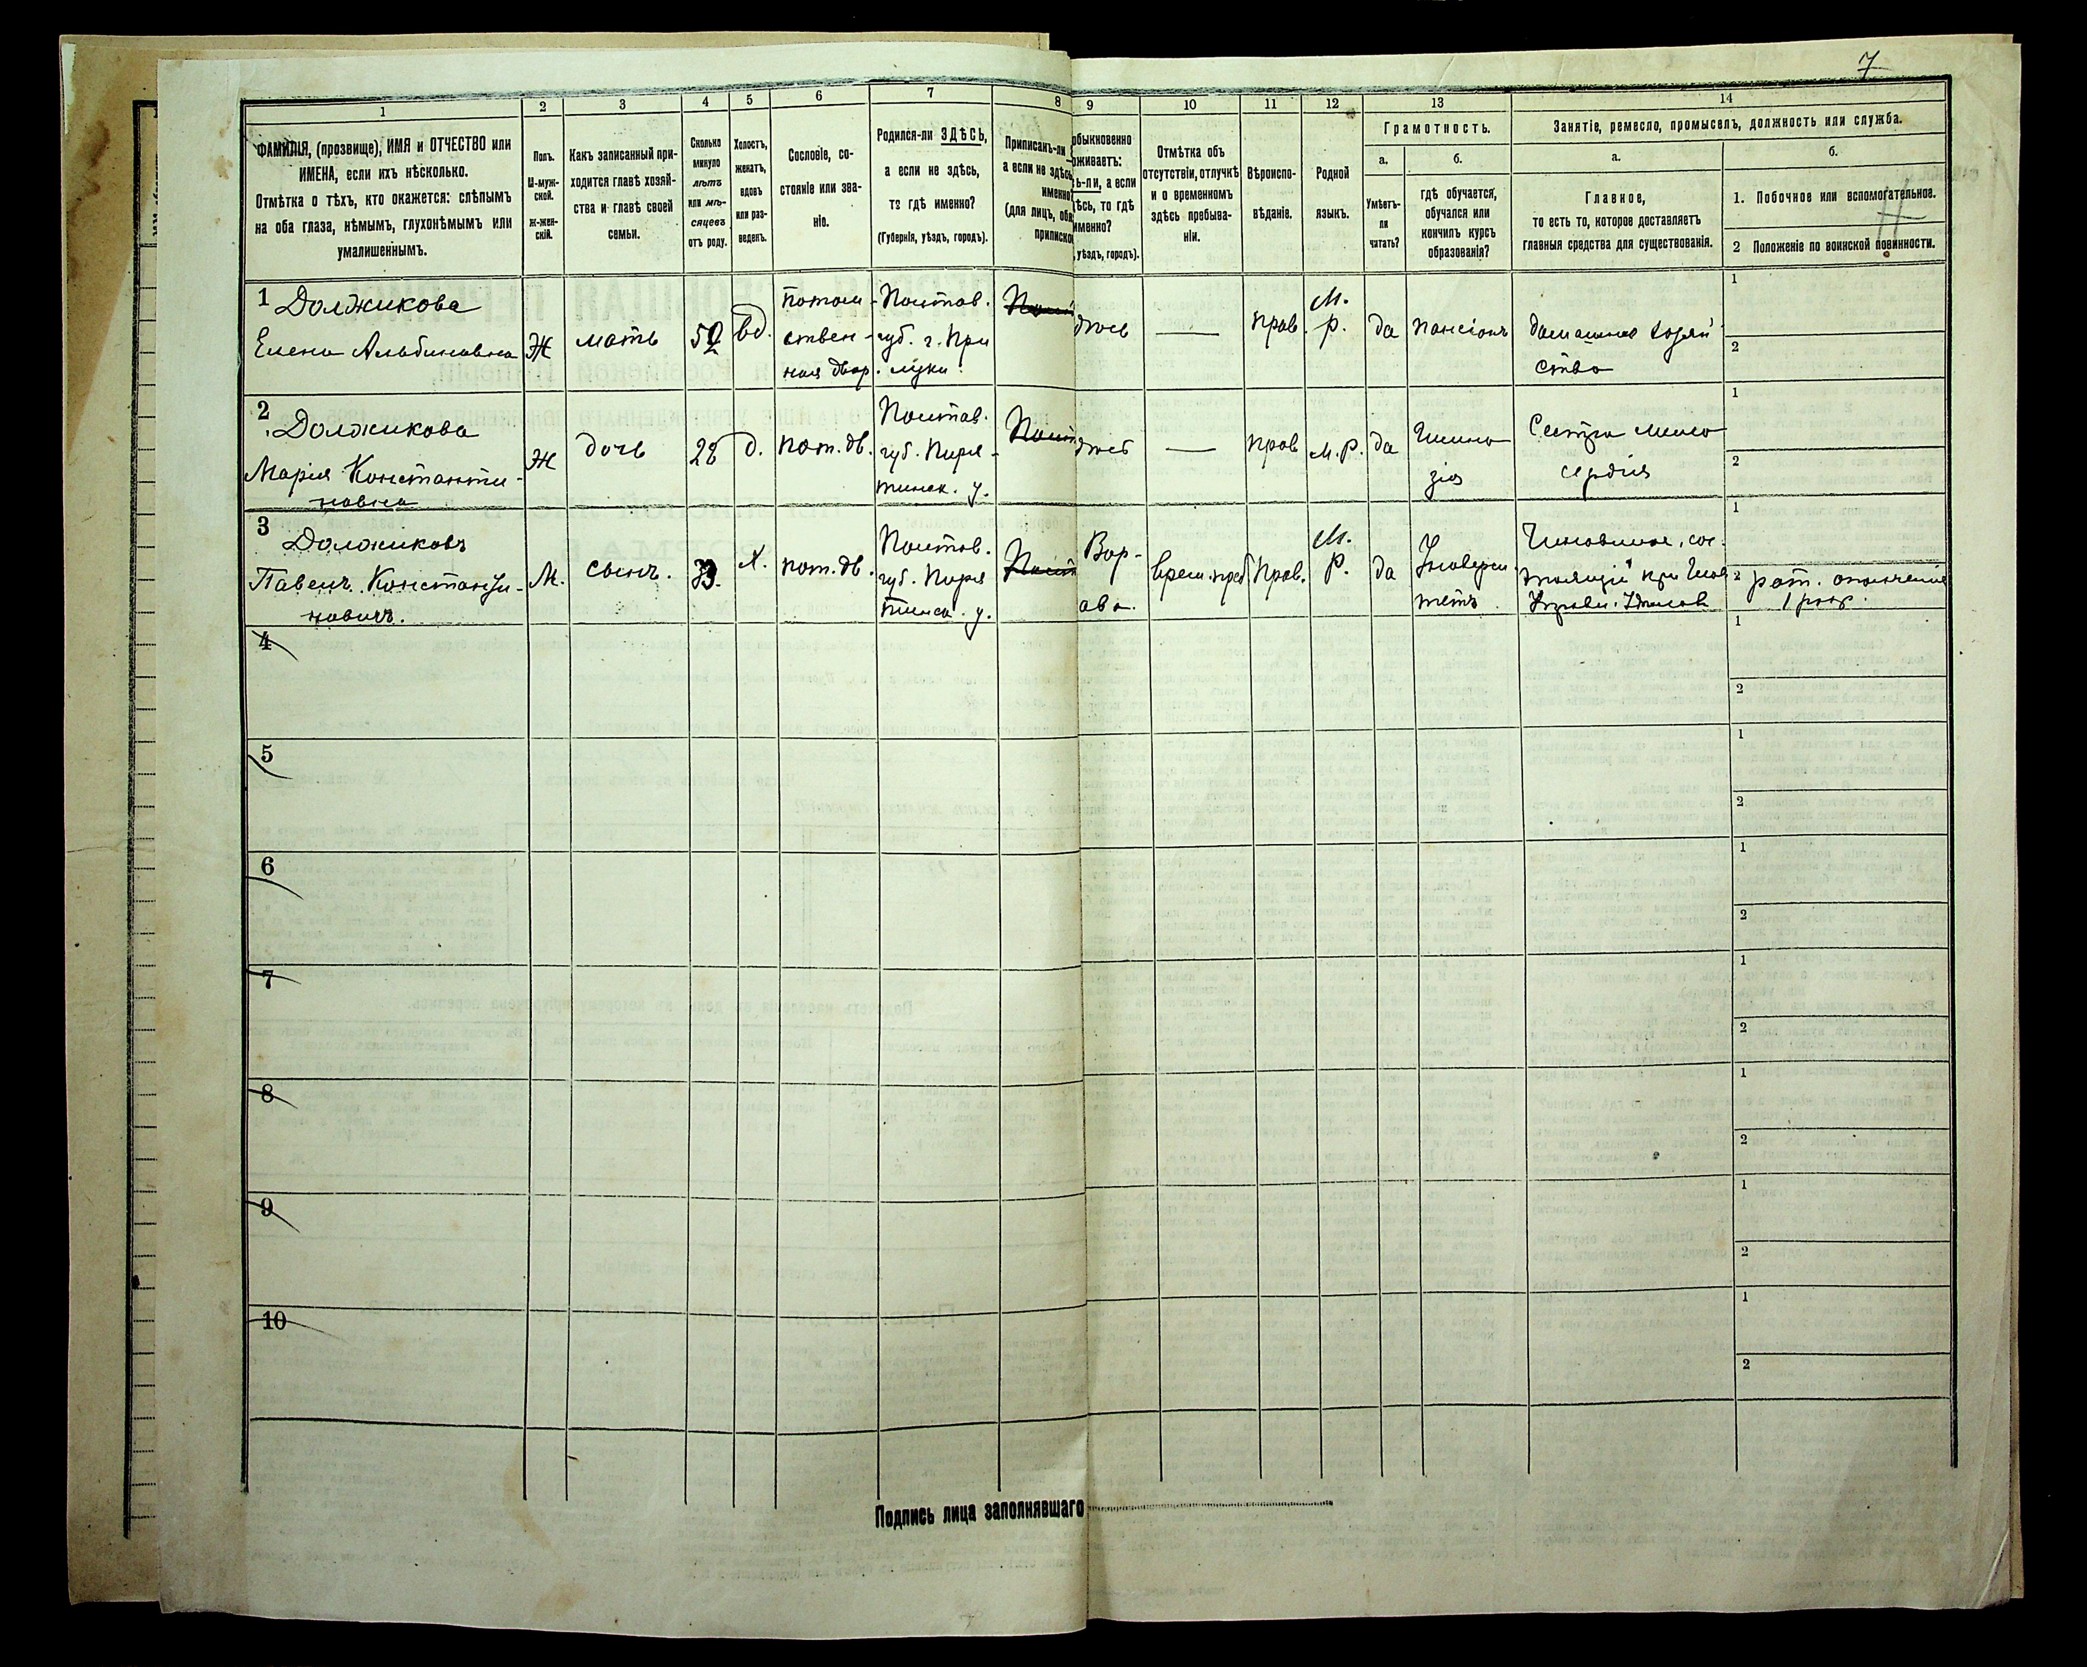 7
1 2 3 4 5 6 7 8 9 10 11 12 13 14
ФАМИЛІЯ, (прозвище), ИМЯ и ОТЧЕСТВО или
ИМЕНА, если ихъ нѣсколько.
Отмѣтка о тѣхъ, кто окажется: слѣпымъ
на оба глаза, нѣмымъ, глухонѣмымъ или
умалишеннымъ.
Полъ.
М-муж-
ской.
Ж-жен-
скій.
Какъ записанный при-
ходится главѣ хозяй-
ства и главѣ своей
семьи.
Сколько
минуло
лѣтъ
или мѣ-
сяцевъ
отъ роду.
Холостъ,
женатъ,
вдовъ
или раз-
веденъ.
Сословіе, со-
стояніе или зва-
ніе.
Родился-ли ЗДѢСЬ,
а если не здѣсь,
то гдѣ именно?
(Губернія, уѣздъ, городъ).
Приписанъ-ли
а если не здѣсь
именно?
(для лицъ, обя
приписко
обыкновенно
оживаетъ:
ь-ли, а если
ѣсь, то гдѣ
именно?
, уѣздъ, городъ).
Отмѣтка объ
отсутствіи, отлучкѣ
и о временномъ
здѣсь пребыва-
ніи.
Вѣроиспо-
вѣданіе.
Родной
языкъ.
Грамотность.
а.
Умѣетъ-
ли
читать?
б.
гдѣ обучается,
обучался или
кончилъ курсъ
образованія?
Занятіе, ремесло, промыселъ, должность или служба.
а.
Главное,
то есть то, которое доставляетъ
главныя средства для существованія.
б.
1. Побочное или вспомогательное.
2 Положеніе по воинской повинности.
1 Должикова
Елена Альбиновна
Ж
мать
52
вд.
потом-
ствен-
ная двор.
Полтав.
губ. г. При
луки.
дѣсь
—
прав.
М.
р.
да
пансіонъ
домашнее хозяй
ство
1
2
2
Должикова
Марія Константи-
новна
Ж
дочь
28
д.
пот. дв.
Полтав.
губ. Пиря-
тинск. у.
дѣсь
—
прав
М. р.
да
Гимна
зія
Сестра мило
сердія
1
2
3
Должиковъ
Павелъ Константи-
новичъ.
М.
сынъ.
33.
х.
пот. дв.
Полтав.
губ. Пиря
тинск. у.
Вар-
ава.
врем. преб
Прав.
М.
р.
да
Универси
тетъ
Чиновникъ, сос.
1
2 рат. ополченія
1 разр.
4
1
2
5
1
2
6
1
2
7
1
2
8
1
2
9
1
2
10
1
2
Подпись лица заполнявшаго